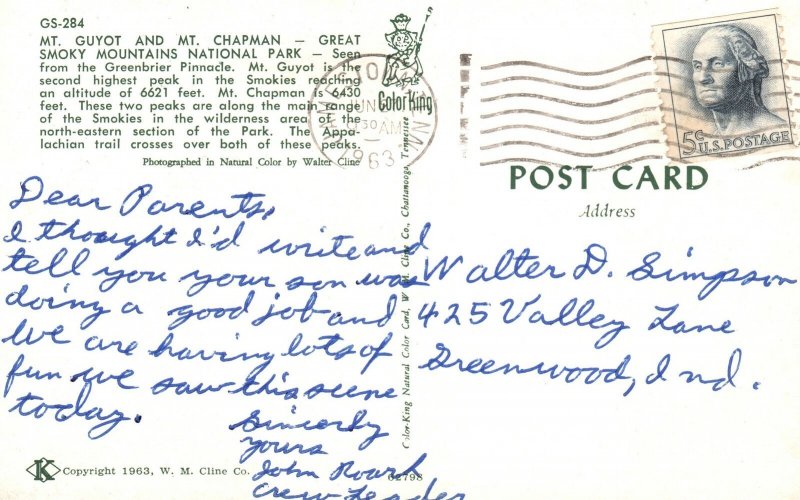 GS-284
MT. GUYOT AND MT. CHAPMAN — GREAT
SMOKY MOUNTAINS NATIONAL PARK — Seen
from the Greenbrier Pinnacle. Mt. Guyot is the
second highest peak in the Smokies reaching
an altitude of 6621 feet. Mt. Chapman is 6430
feet. These two peaks are along the main range
of the Smokies in the wilderness area of the
north-eastern section of the Park. The Appa-
lachian trail crosses over both of these peaks.
Photographed in Natural Color by Walter Cline
Color King
JUN
AM
1963
5¢ U.S. POSTAGE
POST CARD
Address
Dear Parents,
I thought I'd write and
tell you your son was
doing a good job and
We are having lots of
fun we saw this scene
today.
Sincerly
yours
John Roark
Crew Leader
Walter D. Simpson
425 Valley Lane
Greenwood, Ind.
Color-King Natural Color Card, W. M. Cline Co., Chattanooga, Tennessee
K Copyright 1963, W. M. Cline Co.
62798